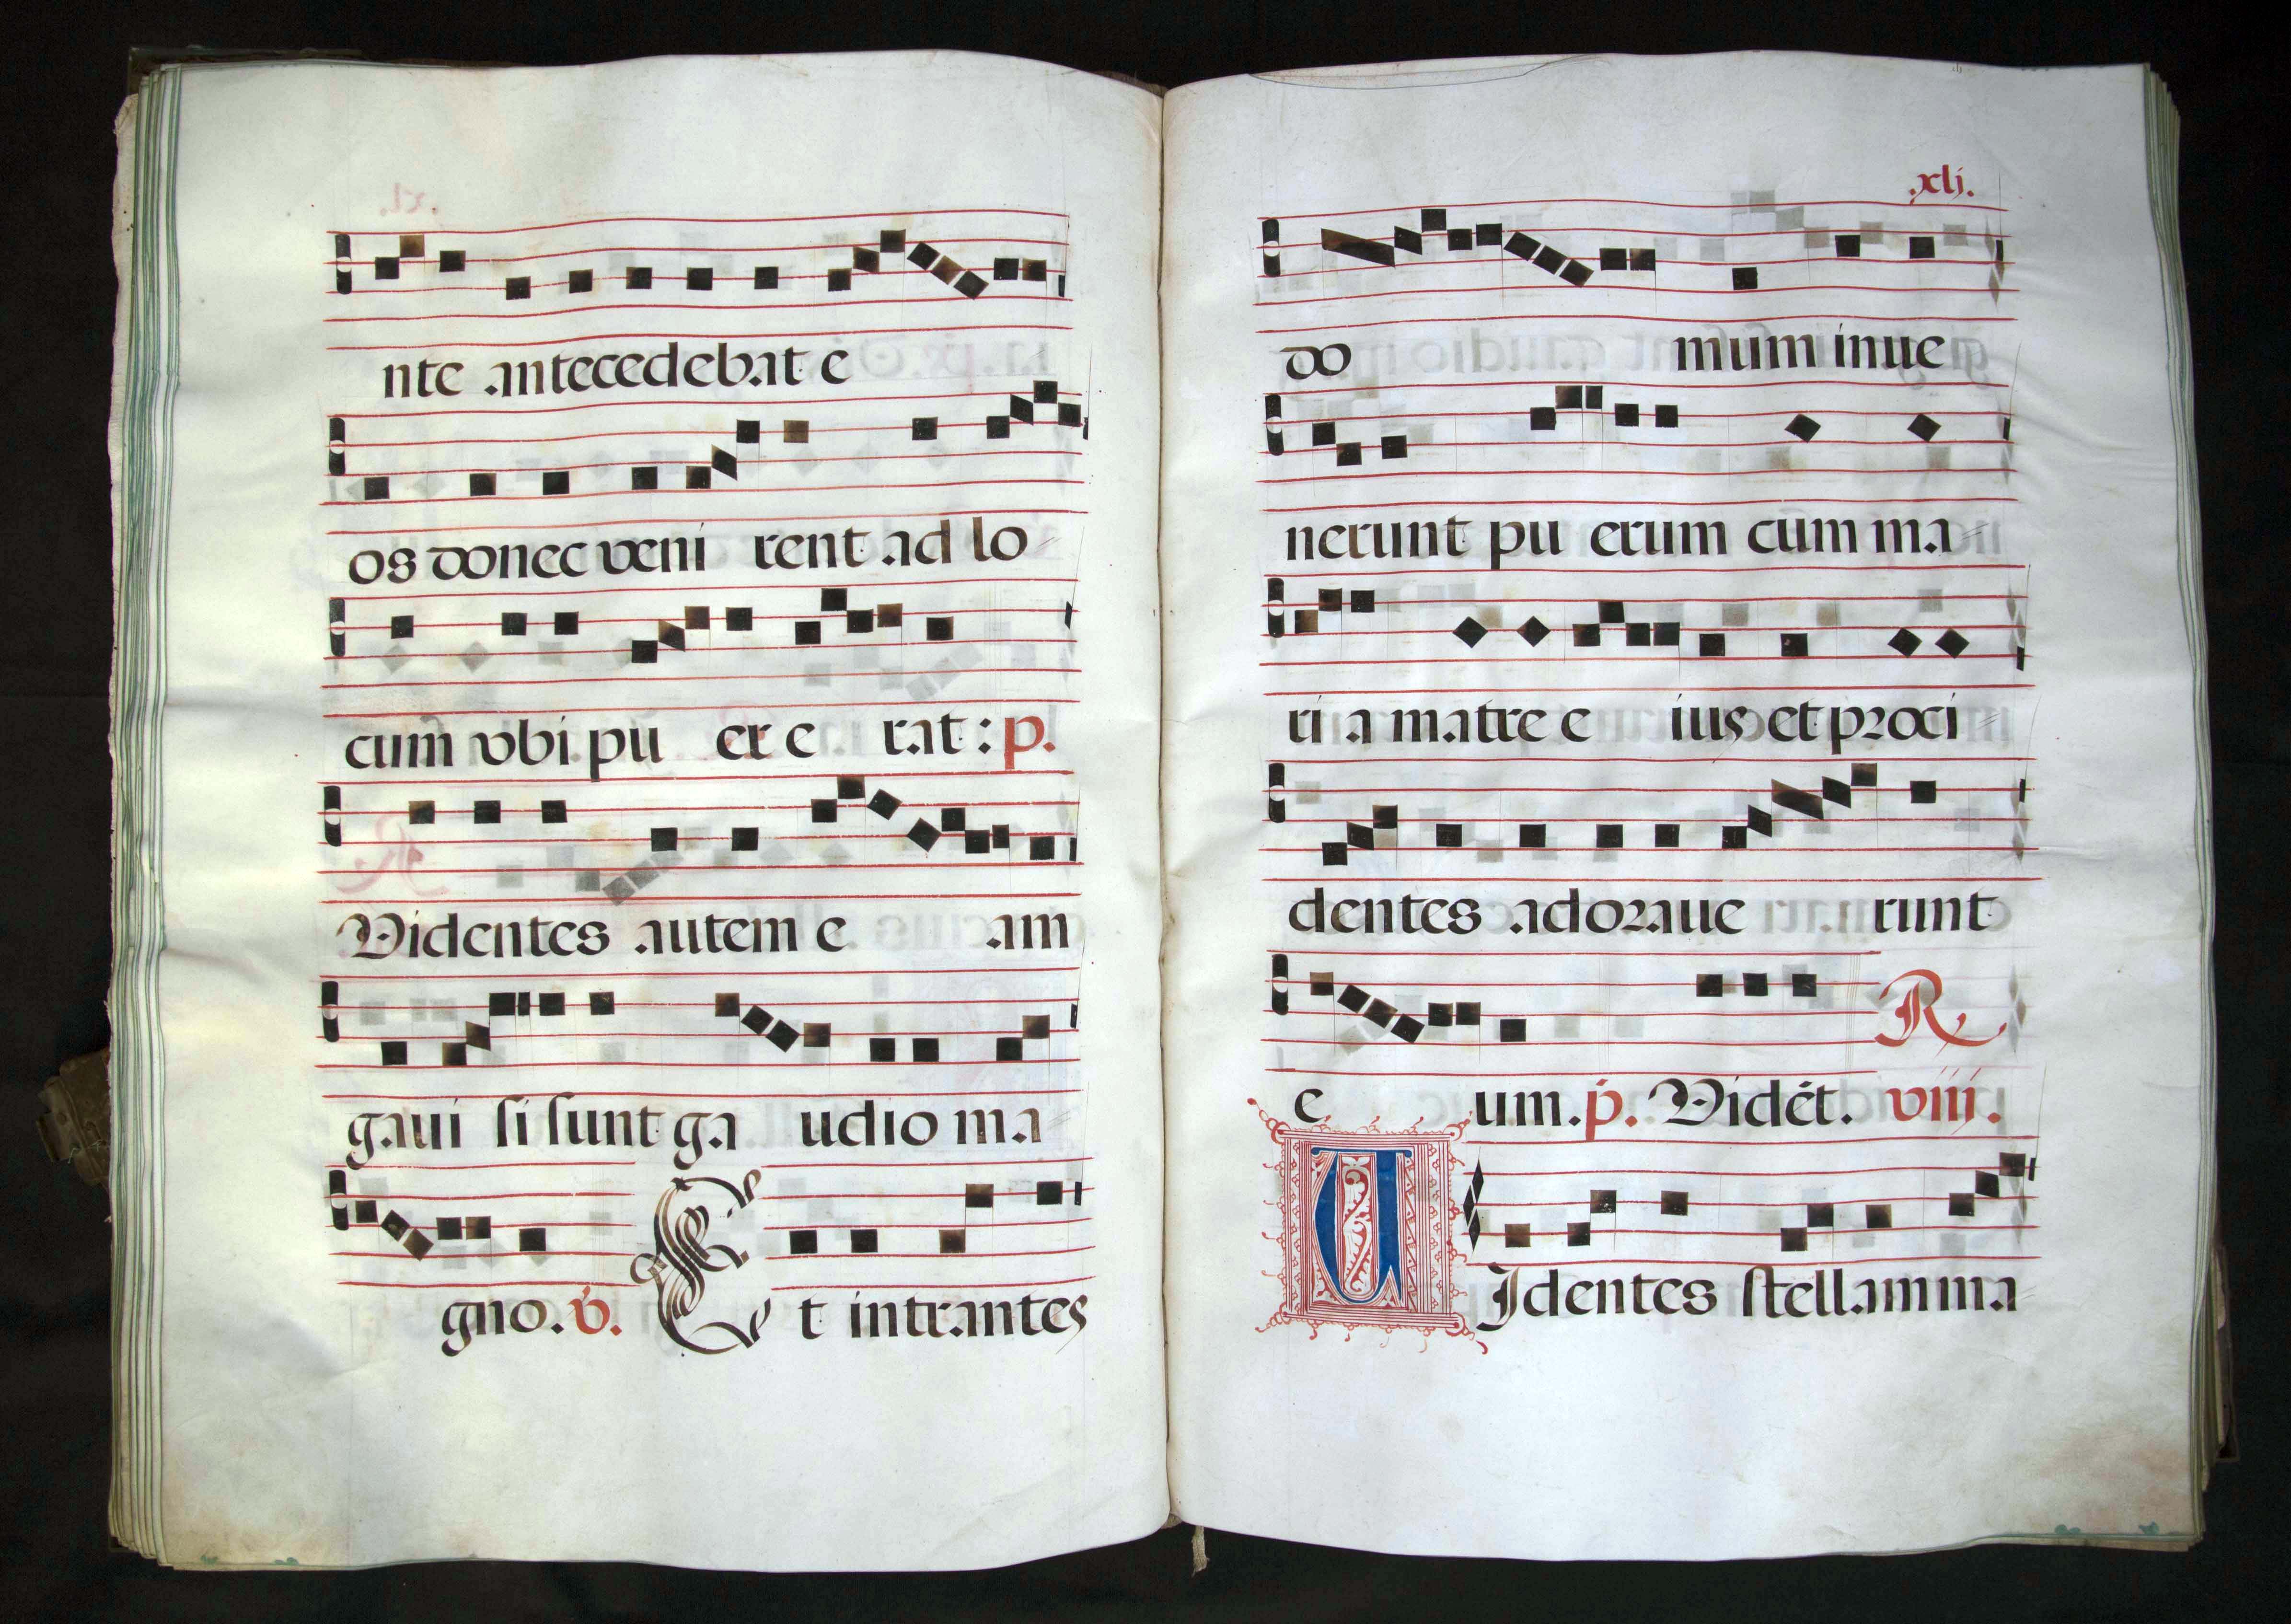 nte antecedebat e
os donec veni rent ad lo
cum vbi pu er e rat : p.
Videntes autem e am
gaui si sunt ga udio ma
gno. v. Et intrantes
.xlj.
do mum inue
nerunt pu erum cum ma
ri a matre e ius et proci
dentes adoraue runt
R
e um. p. Vidēt. viij.
VIdentes stellam ma